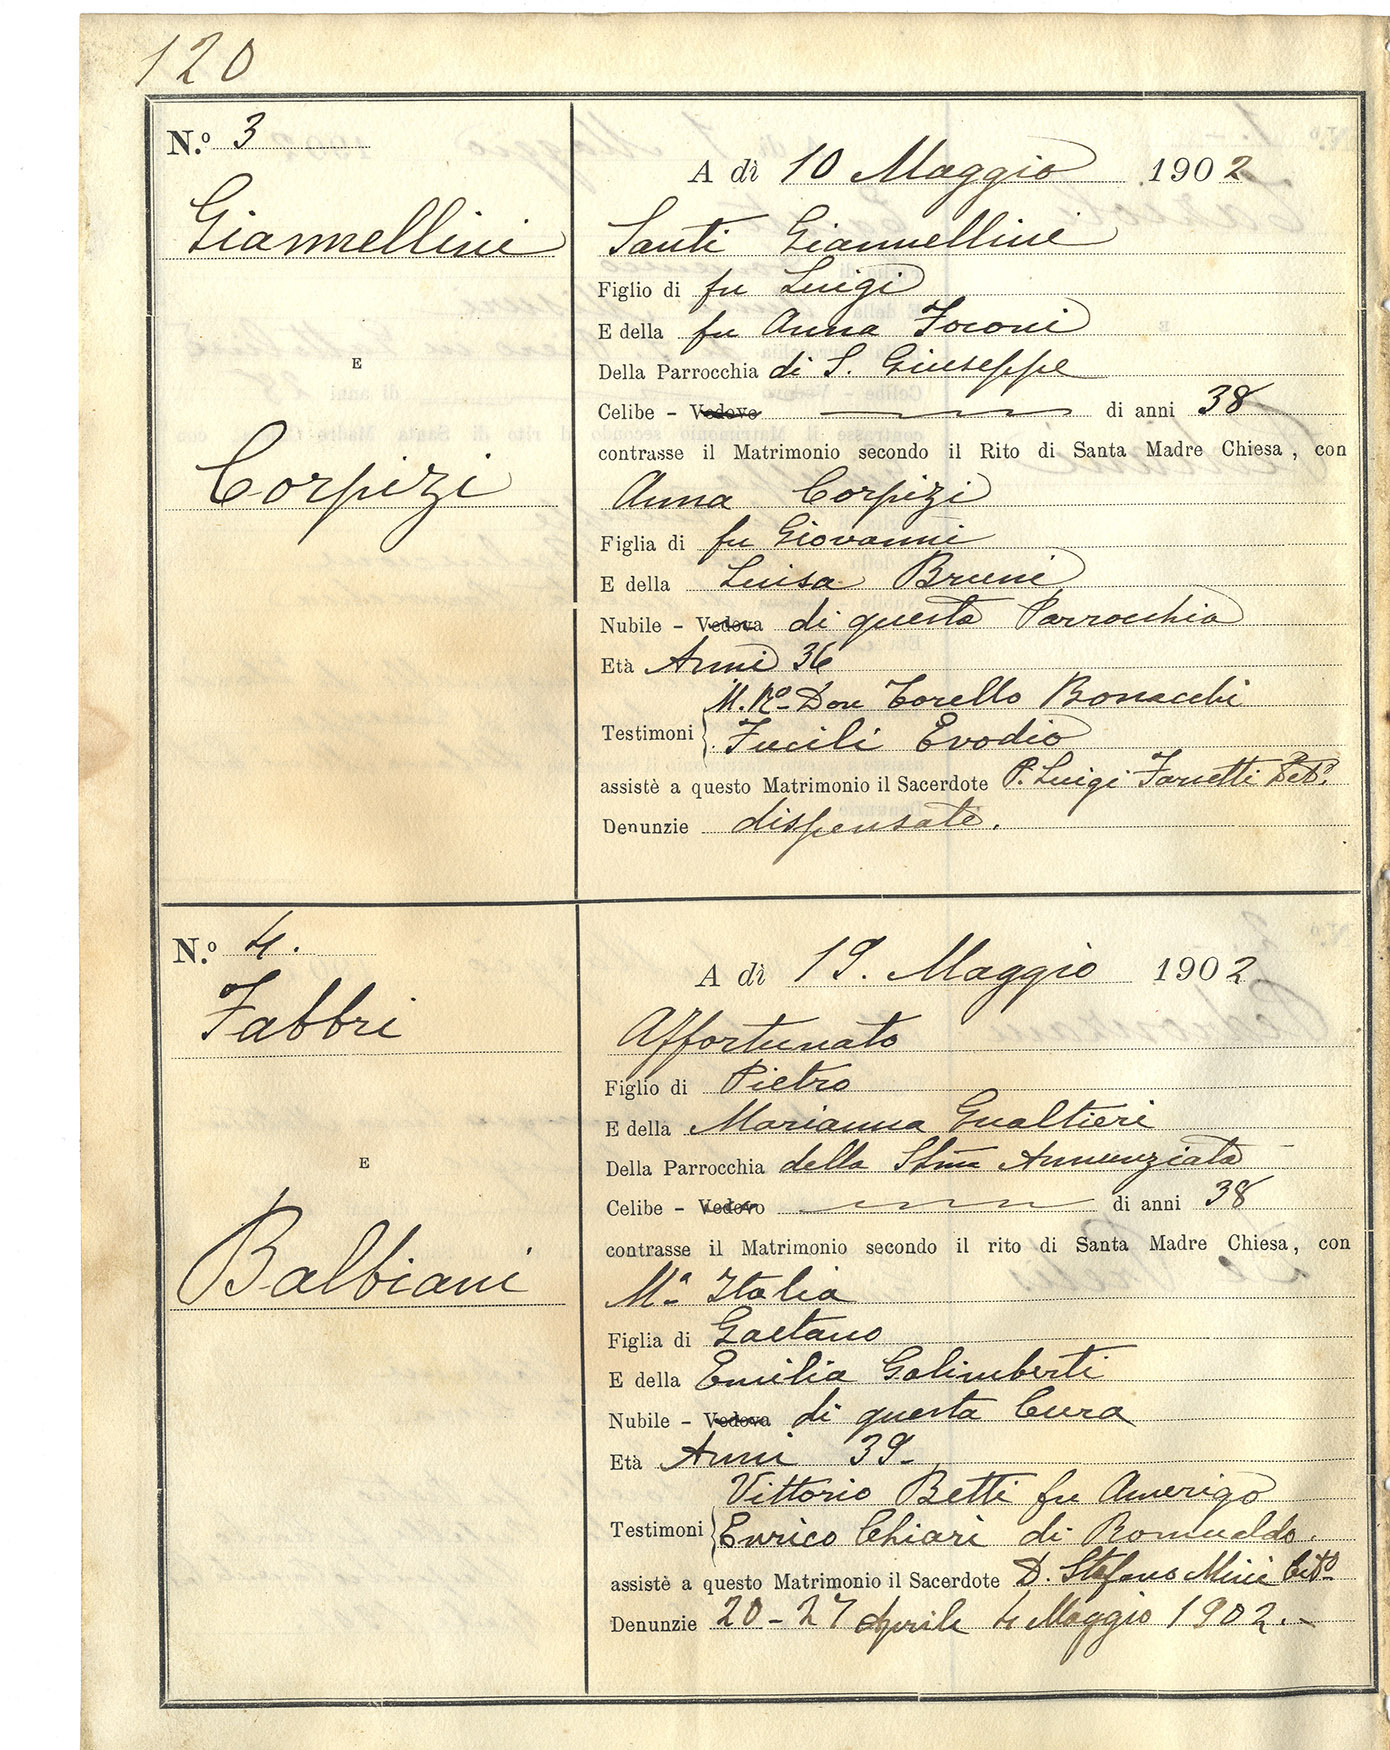 120
N.º 3
Giannellini
E
Corpizi
A dì 10 Maggio 1902
Santi Giannellini
Figlio di fu Luigi
E della fu Anna Foconi
Della Parrocchia di S. Giuseppe
Celibe - Vedovo di anni 38
contrasse il Matrimonio secondo il Rito di Santa Madre Chiesa, con
Anna Corpizi
Figlia di fu Giovanni
E della Luisa Bruni
Nubile - Vedova di questa Parrocchia
Età Anni 36
M. Rº Don Torello Bonacchi
Testimoni Fucili Evodio
assistè a questo Matrimonio il Sacerdote P. Luigi
Denunzie dispensate.
N.º 4.
Fabbri
E
Balbiani
A dì 19. Maggio 1902
Affortunato
Figlio di Pietro
E della Marianna Gualtieri
Della Parrocchia della SSma Annunziata
Celibe - Vedovo di anni 38
contrasse il Matrimonio secondo il rito di Santa Madre Chiesa, con
Mª Italia
Figlia di Gaetano
E della Emilia Galimberti
Nubile - Vedova di questa Cura
Età Anni 39-
Vittorio Betti fu Amerigo
Testimoni Enrico Chiari di Romualdo.
assistè a questo Matrimonio il Sacerdote D. Stefano Mini
Denunzie 20-27 Aprile 4 Maggio 1902.-